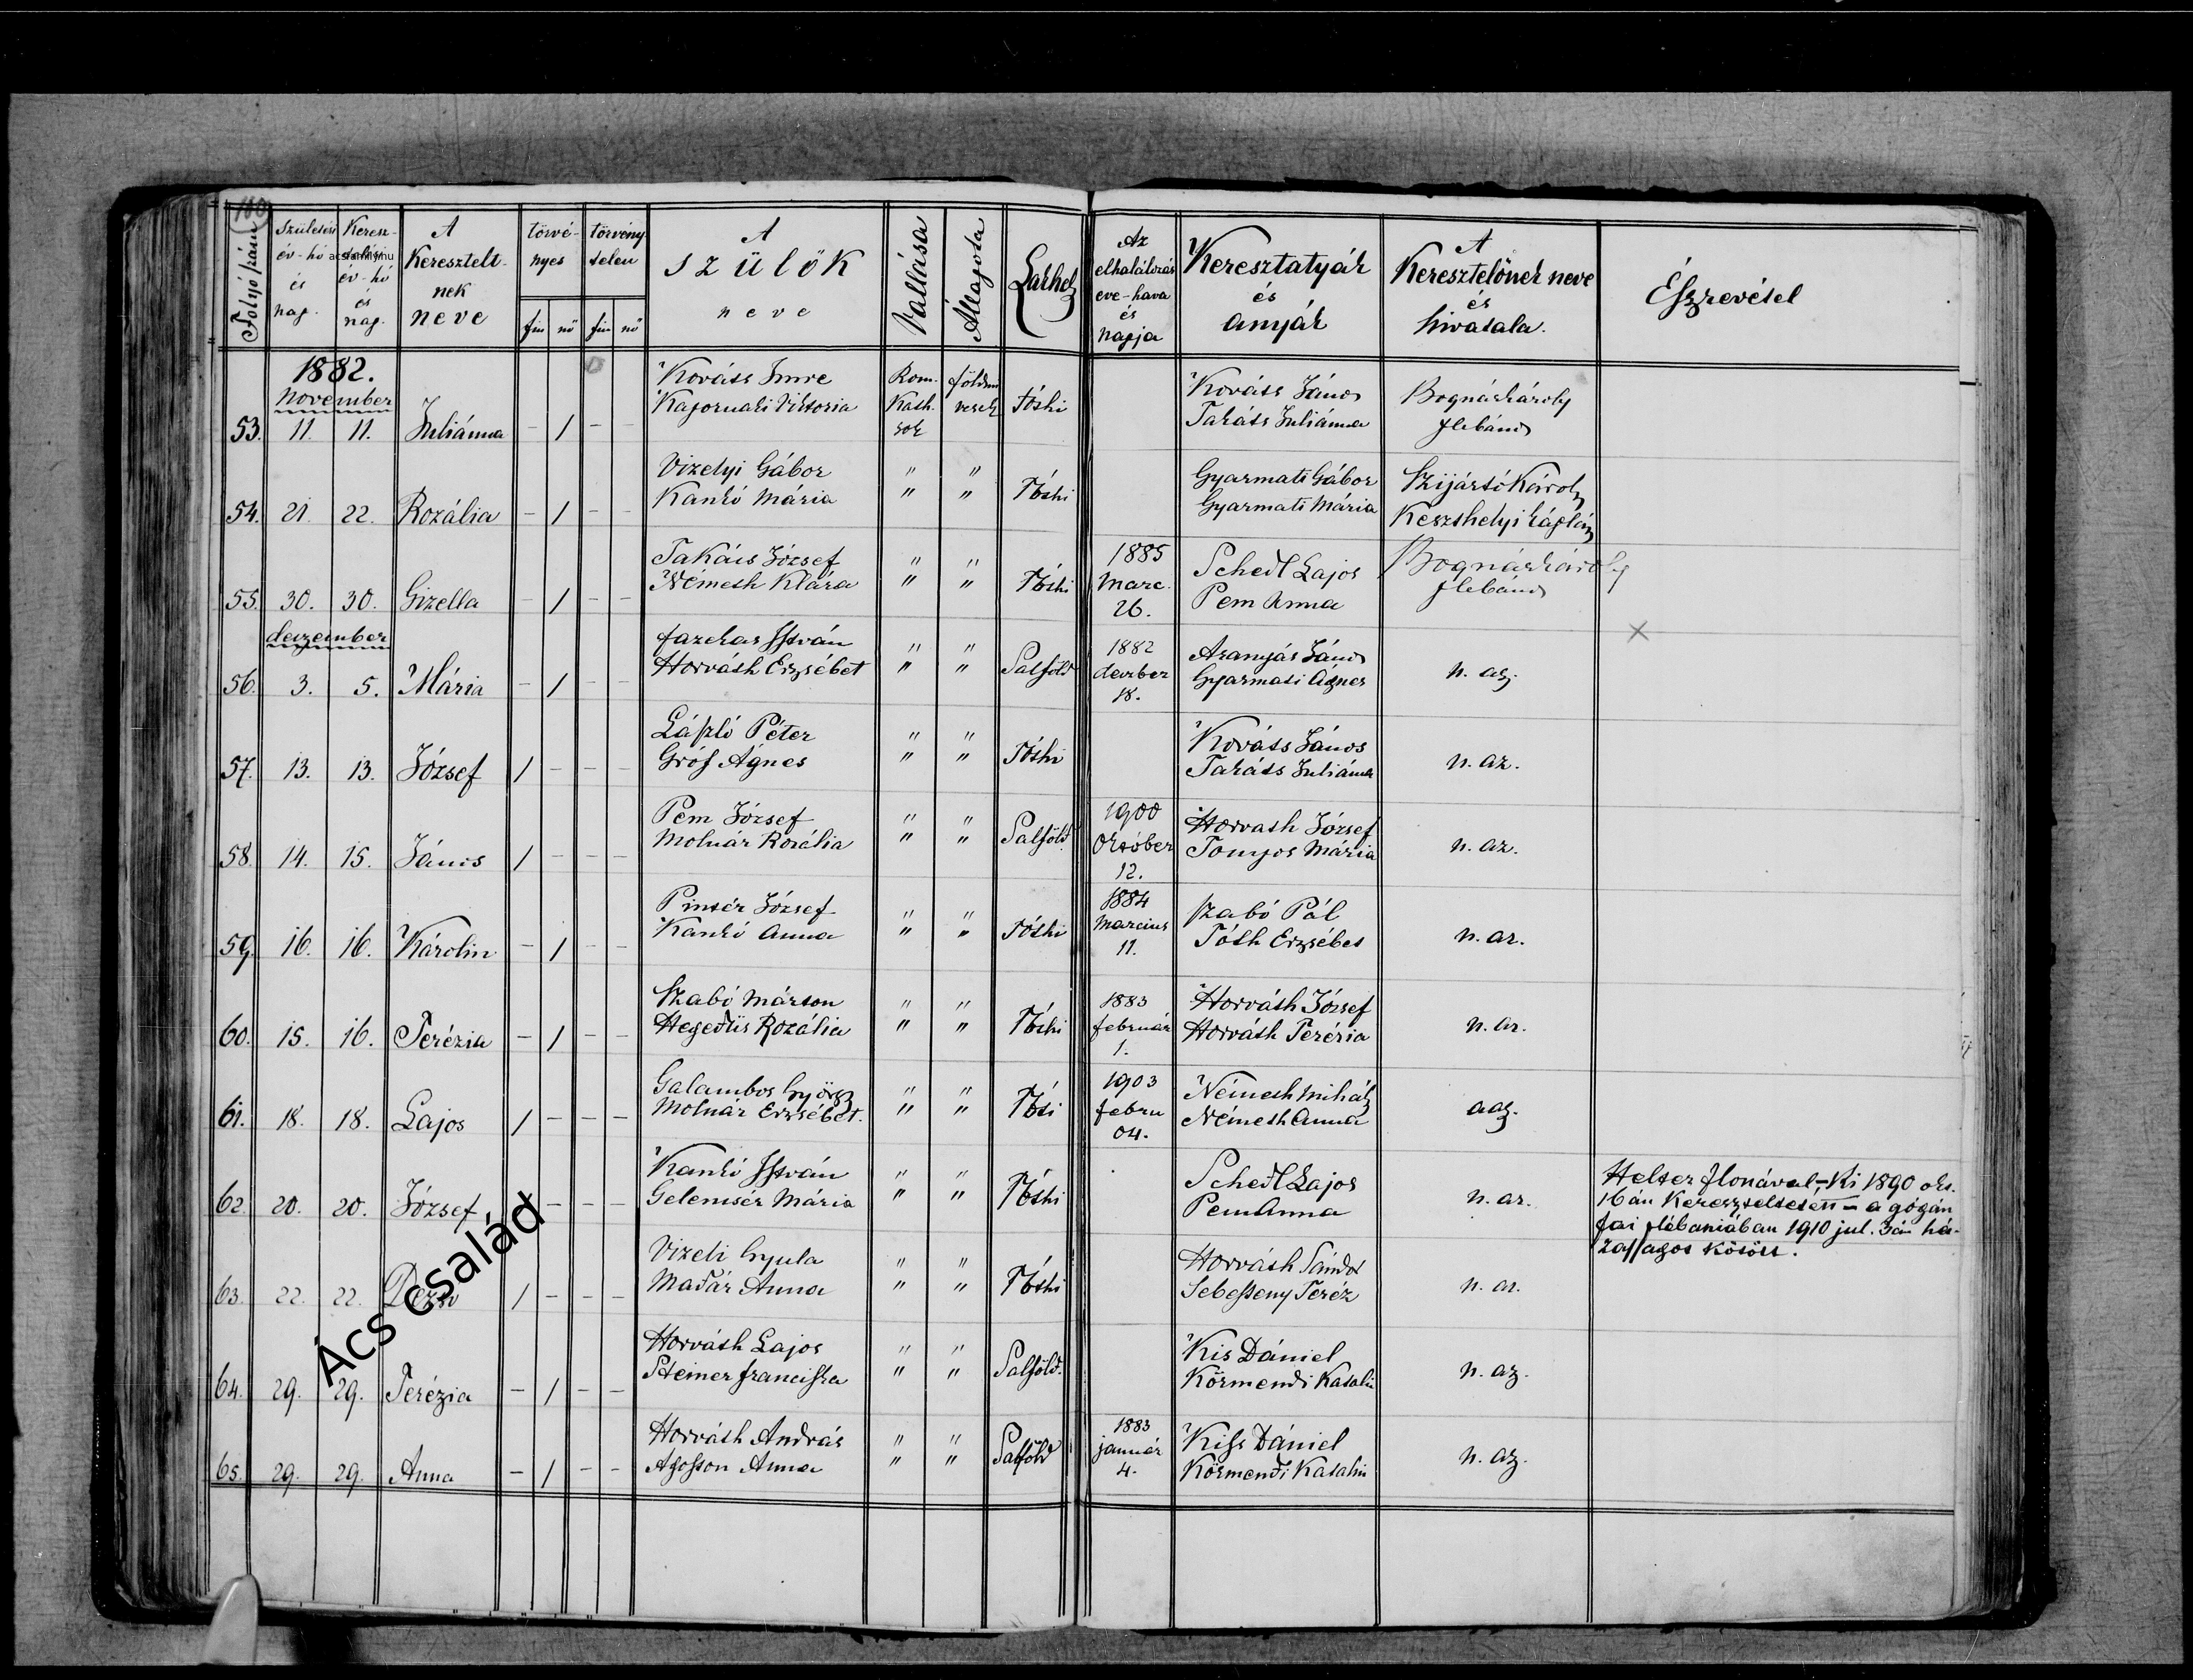 100
Folyó szám
Születési év-hó és nap.
Keresztelési év-hó és nap.
acsfamily.hu
A Kereszteltnek neve
törvényes
törvénytelen
fiu nő fiu nő
A szülők neve
Vallása
Állapota
Lakhely
Az elhalálozás eve-hava és napja
Keresztatyák és anyák
A Keresztelőnek neve és hivatala.
Észrevétel
1882.
November
Kováts Imre Rom. földmi Kováts János Bognár Károly
Viktoria Kath. vesek Tóthi Takáts Juliánna plébános
53. 11. 11. Juliánna – 1 – – sok
Vizelyi Gábor " " Gyarmati Gábor Szijártó Károly
Kankó Mária " " Tóthi Gyarmati Mária Keszthelyi káplán
54. 21. 22. Rozália – 1 – –
Takács József " " 1885 Schedl Lajos Bognár Károly
Németh Klára " " Tóthi Marc. 26. Pem Anna plébános
55. 30. 30. Gizella – 1 – –
deczember
Fazekas István " " 1882 Aranyás János
Horváth Erzsébet " " Salföld deczber 18. Gyarmati Ágnes n. az.
56. 3. 5. Mária – 1 – –
László Péter " " Kováts János
Gróf Ágnes " " Tóthi Takáts Juliánna n. az.
57. 13. 13. József 1 – – –
Pem József " " 1900 Horvath József
Molnár Rozália " " Salföld. Október 12. Tomjos Mária n. az.
58. 14. 15. János 1 – – –
Pintér József " " 1884 Szabó Pál
Kankó Anna " " Tóthi Marcius 11. Tóth Erzsébet n. az.
59. 16. 16. Károlin – 1 – –
Szabó Márton " " 1883 Horváth József
Hegedüs Rozália " " Tóthi február 1. Horváth Terézia n. az.
60. 15. 16. Terézia – 1 – –
Galambos György " " 1903 Németh Mihály
Molnár Erzsébet. " " Tóti febru 04. Németh Anna a az.
61. 18. 18. Lajos 1 – – –
Kankó István " " Schedl Lajos Helter Ilonával – Ki 1890 okt.
Gelencsér Mária " " Tóthi Pem Anna n. az. 16án Kereszteltetett – a gógán
62. 20. 20. József – – – fai plébániában 1910 jul. 3án há-
zasságot kötött.
Vizeli Gyula " " Horváth Sándor
Madár Anna " " Tóthi Sebesseny Teréz n. az.
63. 22. 22. Dezső 1 – – –
Horváth Lajos " " Kis Dániel
Steiner Franciska " " Salföld. Körmendi Katalin n. az.
64. 29. 29. Terézia – 1 – –
Horváth András " " 1883 Kiss Dániel
Anna " " Salföld január 4. Körmendi Katalin n. az.
65. 29. 29. Anna – 1 – –
Ács család